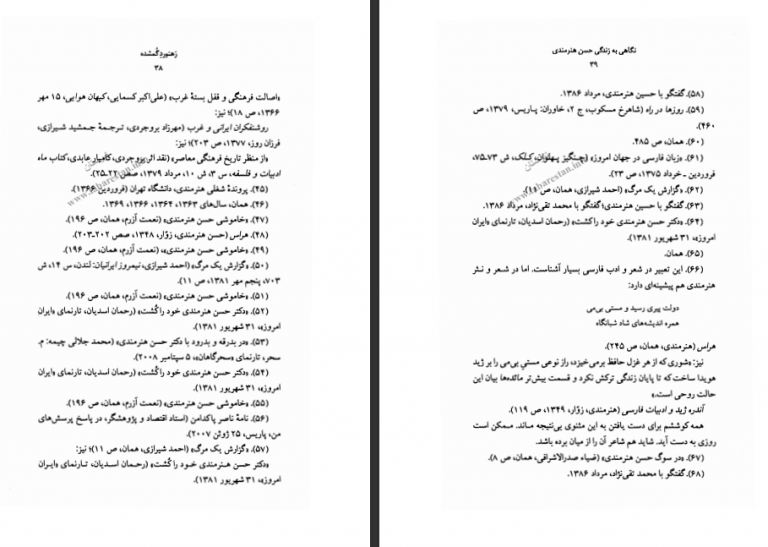 رَهنورد گُمشده
۳۸
«اصالت فرهنگی و قفل بستهٔ غرب» (علی‌اکبر کسمایی، کیهان هوایی، ۱۵ مهر
۱۳۶۶، ص ۱۸)؛ نیز:
روشنفکران ایرانی و غرب (مهرزاد بروجردی، ترجمهٔ جمشید شیرازی،
فرزان روز، ۱۳۷۷، ص ۲۰۳)؛ نیز:
«از منظر تاریخ فرهنگی معاصر» (نقد اثر بروجردی، کامیار عابدی، کتاب ماه
ادبیات و فلسفه، س ۳، ش ۱۰، مرداد ۱۳۷۹، صص ۲۲ـ۲۵).
(۴۵). پروندهٔ شغلی هنرمندی، دانشگاه تهران (فروردین ۱۳۶۶).
(۴۶). همان، سال‌های ۱۳۶۳، ۱۳۶۴، ۱۳۶۶، ۱۳۶۹.
(۴۷). «خاموشی حسن هنرمندی» (نعمت آزرم، همان، ص ۱۹۶).
(۴۸). هراس (حسن هنرمندی، زوّار، ۱۳۴۸، صص ۲۰۲ـ۲۰۳).
(۴۹). «خاموشی حسن هنرمندی» (نعمت آزرم، همان، ص ۱۹۶).
(۵۰). «گزارش یک مرگ» (احمد شیرازی، نیمروز ایرانیان: لندن، س ۱۴، ش
۷۰۳، پنجم مهر ۱۳۸۱، ص ۱۱).
(۵۱). «خاموشی حسن هنرمندی» (نعمت آزرم، همان، ص ۱۹۶).
(۵۲). «دکتر حسن هنرمندی خود را کُشت» (رحمان اسدیان، تارنمای «ایران
امروز»، ۳۱ شهریور ۱۳۸۱).
(۵۳). «در بدرقه و بدرود با دکتر حسن هنرمندی» (محمد جلالی چیمه: م.
سحر، تارنمای «سحرگاهان»، ۵ سپتامبر ۲۰۰۸).
(۵۴). «دکتر حسن هنرمندی خود را کُشت» (رحمان اسدیان، تارنمای «ایران
امروز»، ۳۱ شهریور ۱۳۸۱).
(۵۵). «خاموشی حسن هنرمندی» (نعمت آزرم، همان، ص ۱۹۶).
(۵۶). نامهٔ ناصر پاکدامن (استاد اقتصاد و پژوهشگر، در پاسخ پرسش‌های
من، پاریس، ۲۵ ژوئن ۲۰۰۷).
(۵۷). «گزارش یک مرگ» (احمد شیرازی، همان، ص ۱۱)؛ نیز:
«دکتر حسن هنرمندی خود را کُشت» (رحمان اسدیان، تارنمای «ایران
امروز»، ۳۱ شهریور ۱۳۸۱).
نگاهی به زندگی حسن هنرمندی
۳۹
(۵۸). گفتگو با حسین هنرمندی، مرداد ۱۳۸۶.
(۵۹). روزها در راه (شاهرخ مسکوب، ج ۲، خاوران: پاریس، ۱۳۷۹، ص
۴۶۰).
(۶۰). همان، ص ۴۸۵.
(۶۱). «زبان فارسی در جهان امروز» (چنگیز پهلوان، کلک، ش ۷۳ـ۷۵،
فروردین ـ خرداد ۱۳۷۵، ص ۲۳).
(۶۲). «گزارش یک مرگ» (احمد شیرازی، همان، ص ۱۱).
(۶۳). گفتگو با حسین هنرمندی؛ گفتگو با محمد تقی‌نژاد، مرداد ۱۳۸۶.
(۶۴). «دکتر حسن هنرمندی خود را کشت» (رحمان اسدیان، تارنمای «ایران
امروز»، ۳۱ شهریور ۱۳۸۱).
(۶۵). همان.
(۶۶). این تعبیر در شعر و ادب فارسی بسیار آشناست. اما در شعر و نثر
هنرمندی هم پیشینه‌ای دارد:
دولت پیری رسید و مستی بی‌می
همره اندیشه‌های شاد شبانگاه
هراس (هنرمندی، همان، ص ۲۴۵).
نیز: «شوری که از هر غزل حافظ برمی‌خیزد، راز نوعی مستیِ بی‌می را بر ژید
هویدا ساخت که تا پایان زندگی ترکش نکرد و قسمت بیش‌تر مائده‌ها بیان این
حالت روحی است.»
آندره ژید و ادبیات فارسی (هنرمندی، زوّار، ۱۳۴۹، ص ۱۱۹).
همه کوششم برای دست یافتن به این مثنوی بی‌نتیجه ماند. ممکن است
روزی به دست آید. شاید هم شاعر آن را از میان برده باشد.
(۶۷). «در سوگ حسن هنرمندی» (ضیاء صدرالاشرافی، همان، ص ۸).
(۶۸). گفتگو با محمد تقی‌نژاد، مرداد ۱۳۸۶.